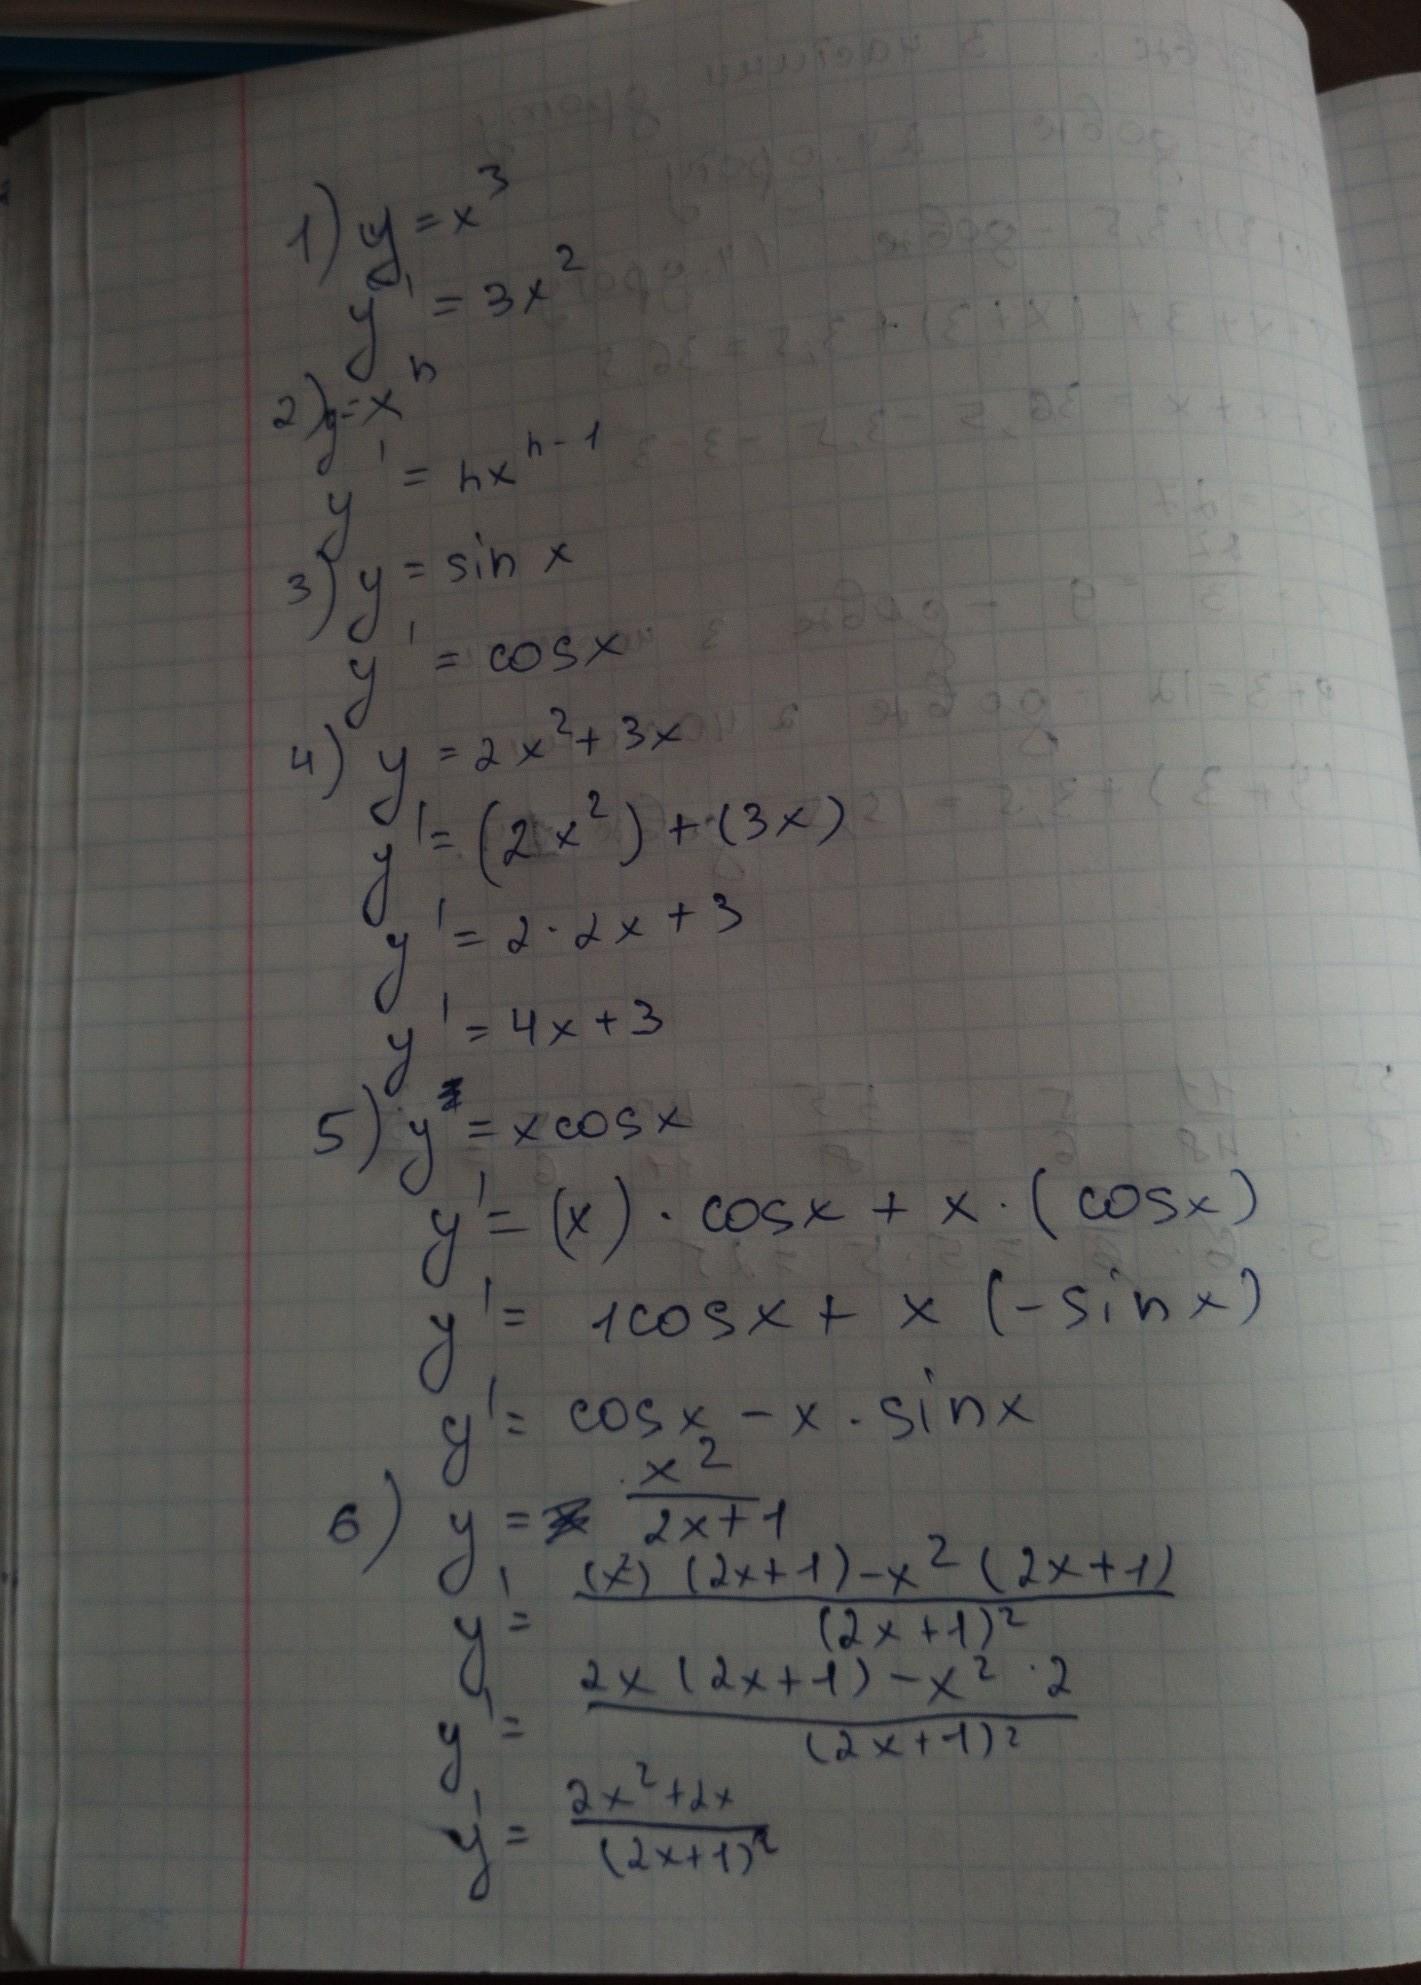 1) y = x³
y' = 3x²
2) y = xⁿ
y' = nxⁿ⁻¹
3) y = sin x
y' = cosx
4) y = 2x² + 3x
y' = (2x²) + (3x)
y' = 2 · 2x + 3
y' = 4x + 3
5) y = xcosx
y' = (x) · cosx + x · (cosx)
y' = 1cosx + x (-sinx)
y' = cosx - x · sinx
6) y = x² / 2x+1
y' = (x²) (2x+1) - x² (2x+1) / (2x+1)²
y' = 2x (2x+1) - x² · 2 / (2x+1)²
y' = 2x² + 2x / (2x+1)²